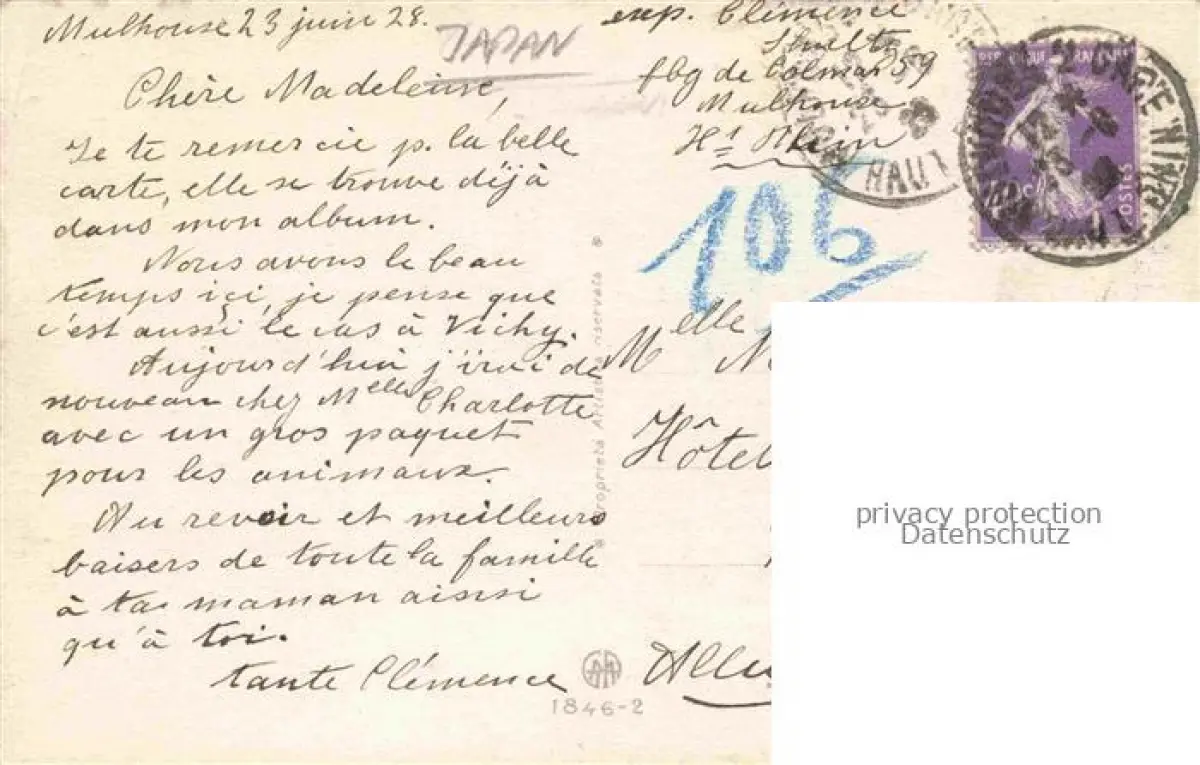 Mulhouse 23 juin 28.
JAPAN
Chère Madeleine,
Je te remercie p. la belle
carte, elle se trouve déjà
dans mon album.
Nous avons le beau
temps içi, je pense que
c'est aussi le cas à Vichy.
Aujourd'hui j'irai de
nouveau chez Melle Charlotte
avec un gros paquet
pour les animaux.
Au revoir et meilleurs
baisers de toute la famille
à ta maman ainsi
qu'à toi.
tante Clémence
exp. Clémence
fbg de Colmar 59
Mulhouse
Ht Rhin
106
Melle
Hôtel
Proprietà Artistica riservata
1846-2
POSTES
privacy protection
Datenschutz